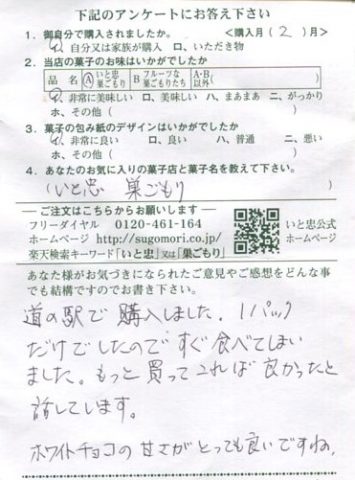 下記のアンケートにお答え下さい
1. 御自分で購入されましたか。 <購入月(2)月>
イ、自分又は家族が購入 ロ、いただき物
2. 当店の菓子のお味はいかがでしたか
品名 Ⓐいと忠巣ごもり B フルーツな巣ごもりたち A・B以外( )
イ、非常に美味しい ロ、美味しい ハ、まあまあ ニ、がっかり
ホ、その他( )
3. 菓子の包み紙のデザインはいかがでしたか
イ、非常に良い ロ、良い ハ、普通 ニ、悪い
ホ、その他( )
4. あなたのお気に入りの菓子店と菓子名を教えて下さい。
(いと忠 巣ごもり )
ーご注文はこちらからお願いしますー
フリーダイヤル 0120-461-164
ホームページ http://sugomori.co.jp/
楽天検索キーワード「いと忠」又は「巣ごもり」
いと忠公式
ホームページ
あなた様がお気づきになられたご意見やご感想をどんな事
でも結構ですのでお書き下さい。
道の駅で購入しました。1パック
だけでしたのですぐ食べてしまい
ました。もっと買ってくれば良かったと
話してします。
ホワイトチョコの甘さがとっても良いですね。